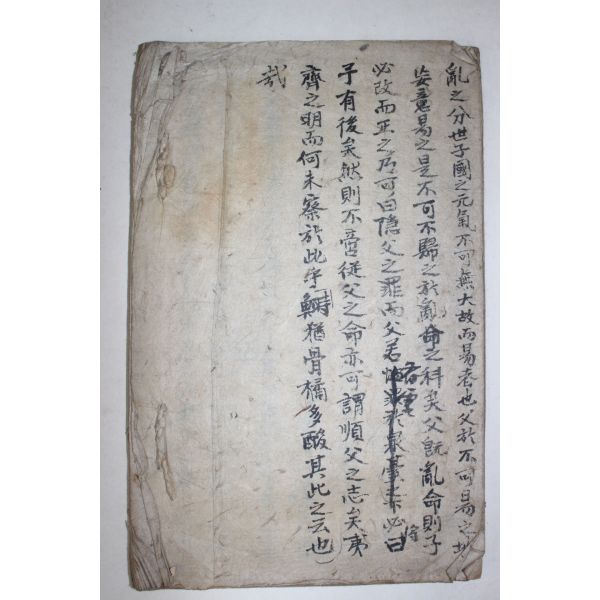 亂之分世子國之元氣不可無大故而易者也父於不可易之
妄意易之是不可不歸之於亂命之科矣父旣亂命則子
必改而正之乃可曰隱父之罪而父若 必曰
予有後矣然則不啻從父之命亦可謂順父之志矣夷
齊之明而何未察於此乎 鰣猶骨橘多酸其此之云也
哉